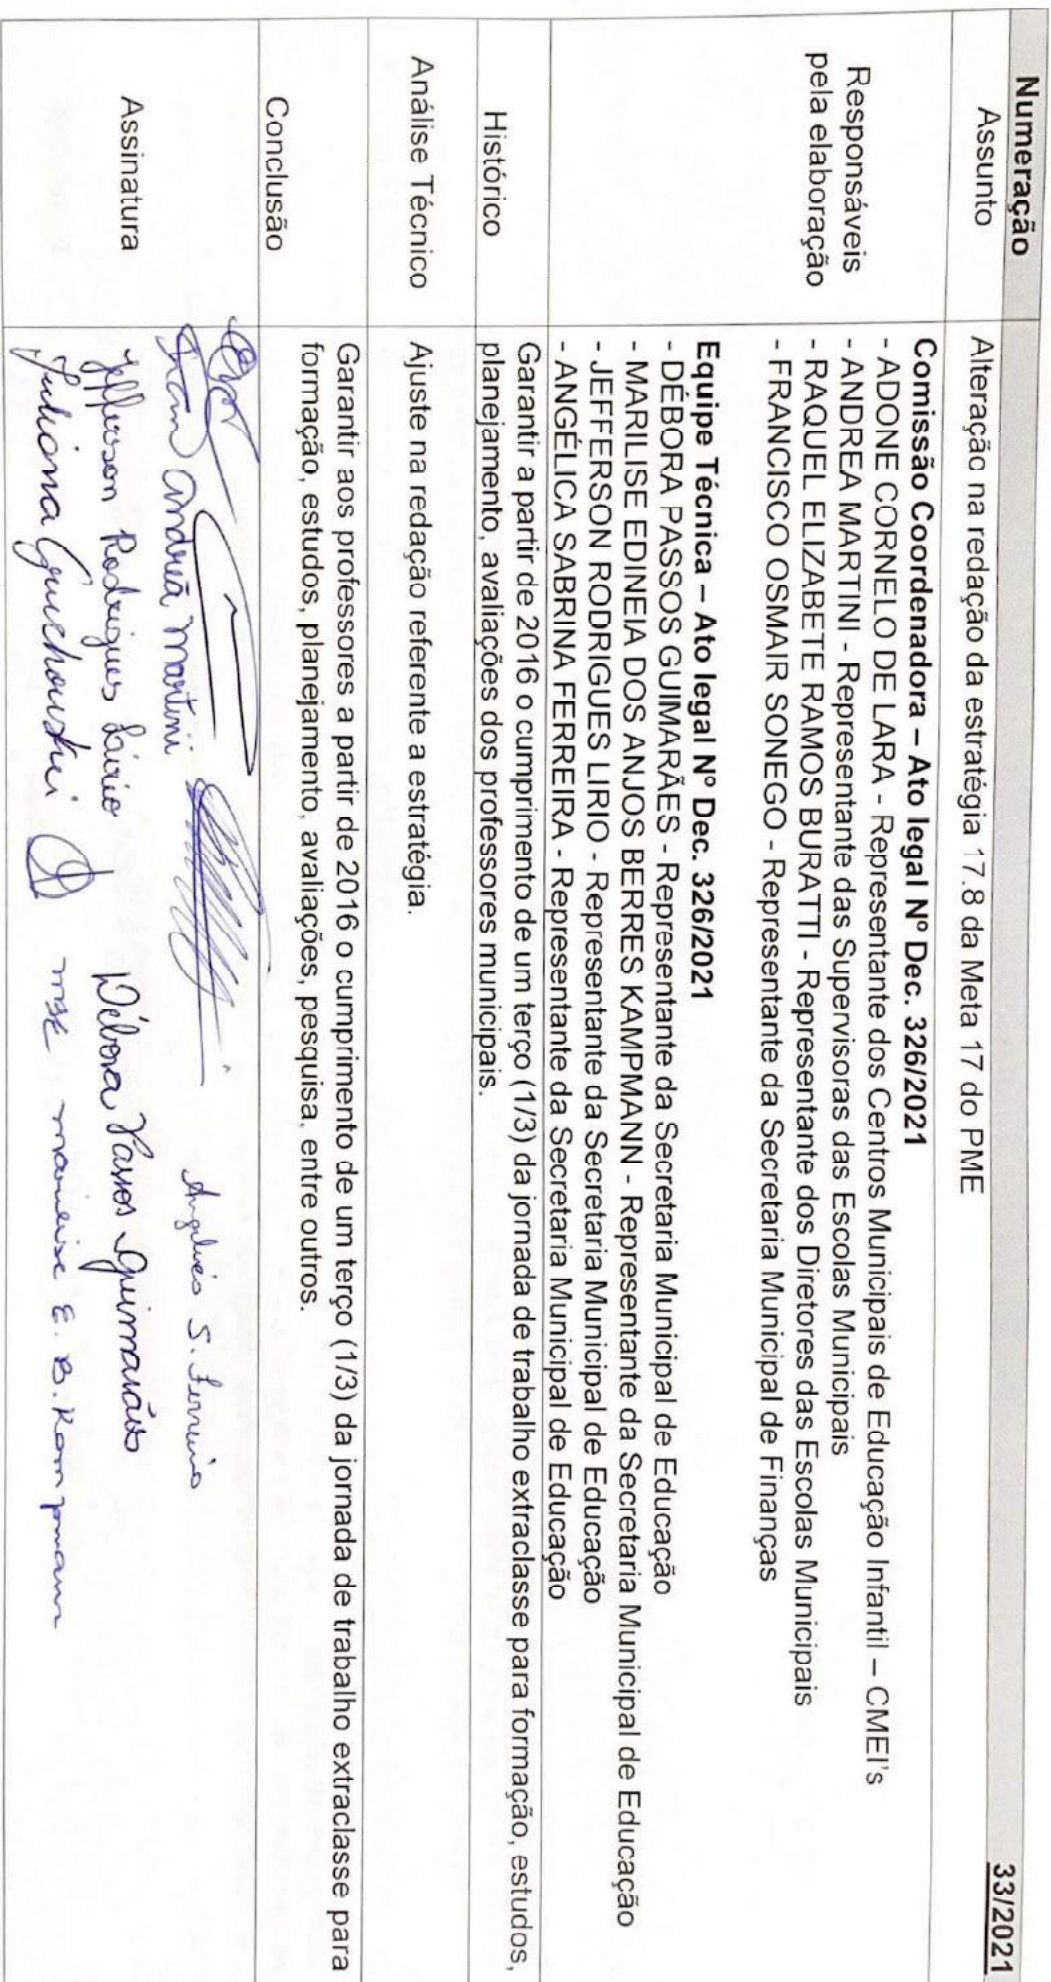 Numeração 33/2021
Assunto Alteração na redação da estratégia 17.8 da Meta 17 do PME
Responsáveis pela elaboração
Comissão Coordenadora – Ato legal Nº Dec. 326/2021
- ADONE CORNELO DE LARA - Representante dos Centros Municipais de Educação Infantil – CMEI's
- ANDREA MARTINI - Representante das Supervisoras das Escolas Municipais
- RAQUEL ELIZABETE RAMOS BURATTI - Representante dos Diretores das Escolas Municipais
- FRANCISCO OSMAIR SONEGO - Representante da Secretaria Municipal de Finanças
Equipe Técnica – Ato legal Nº Dec. 326/2021
- DÉBORA PASSOS GUIMARÃES - Representante da Secretaria Municipal de Educação
- MARILISE EDINEIA DOS ANJOS BERRES KAMPMANN - Representante da Secretaria Municipal de Educação
- JEFFERSON RODRIGUES LIRIO - Representante da Secretaria Municipal de Educação
- ANGÉLICA SABRINA FERREIRA - Representante da Secretaria Municipal de Educação
Histórico
Garantir a partir de 2016 o cumprimento de um terço (1/3) da jornada de trabalho extraclasse para formação, estudos,
planejamento, avaliações dos professores municipais.
Análise Técnico Ajuste na redação referente a estratégia.
Conclusão
Garantir aos professores a partir de 2016 o cumprimento de um terço (1/3) da jornada de trabalho extraclasse para
formação, estudos, planejamento, avaliações, pesquisa, entre outros.
Assinatura
Andreá Martini
Angélica S. Ferreira
Jefferson Rodrigues Lírio
Débora Passos Guimarães
Juliana
Marilise E. B. Kampmann